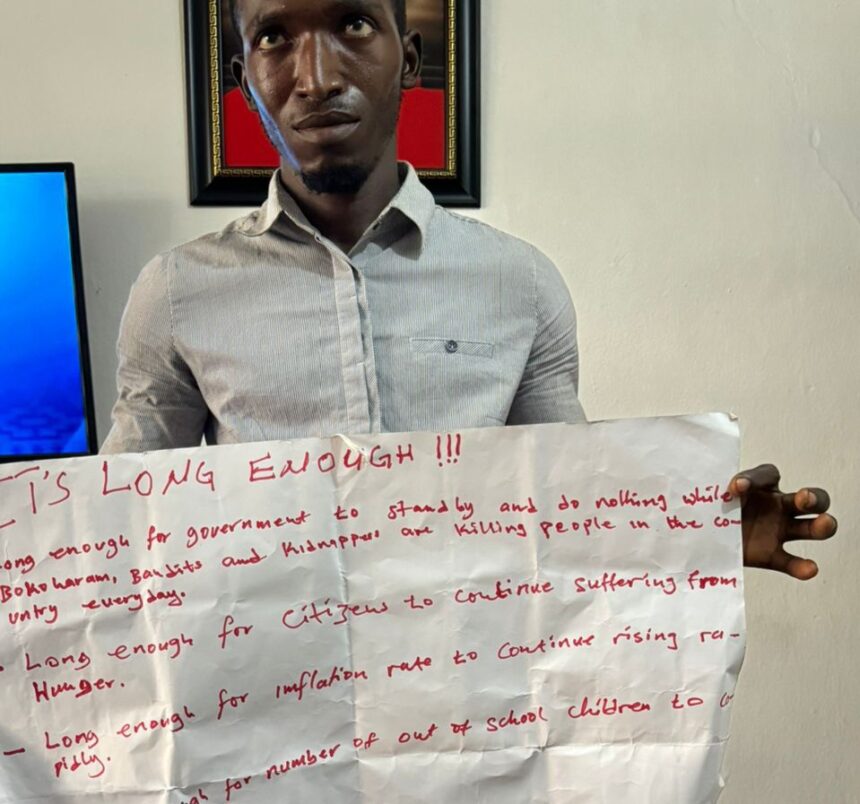 IT'S LONG ENOUGH !!!
ong enough for government to standby and do nothing while
Bokoharam, Bandits and Kidnappers are killing people in the co-
untry everyday.
- Long enough for citizens to continue suffering from
Hunger.
- Long enough for inflation rate to continue rising ra-
pidly.
ugh for number of out of school children to